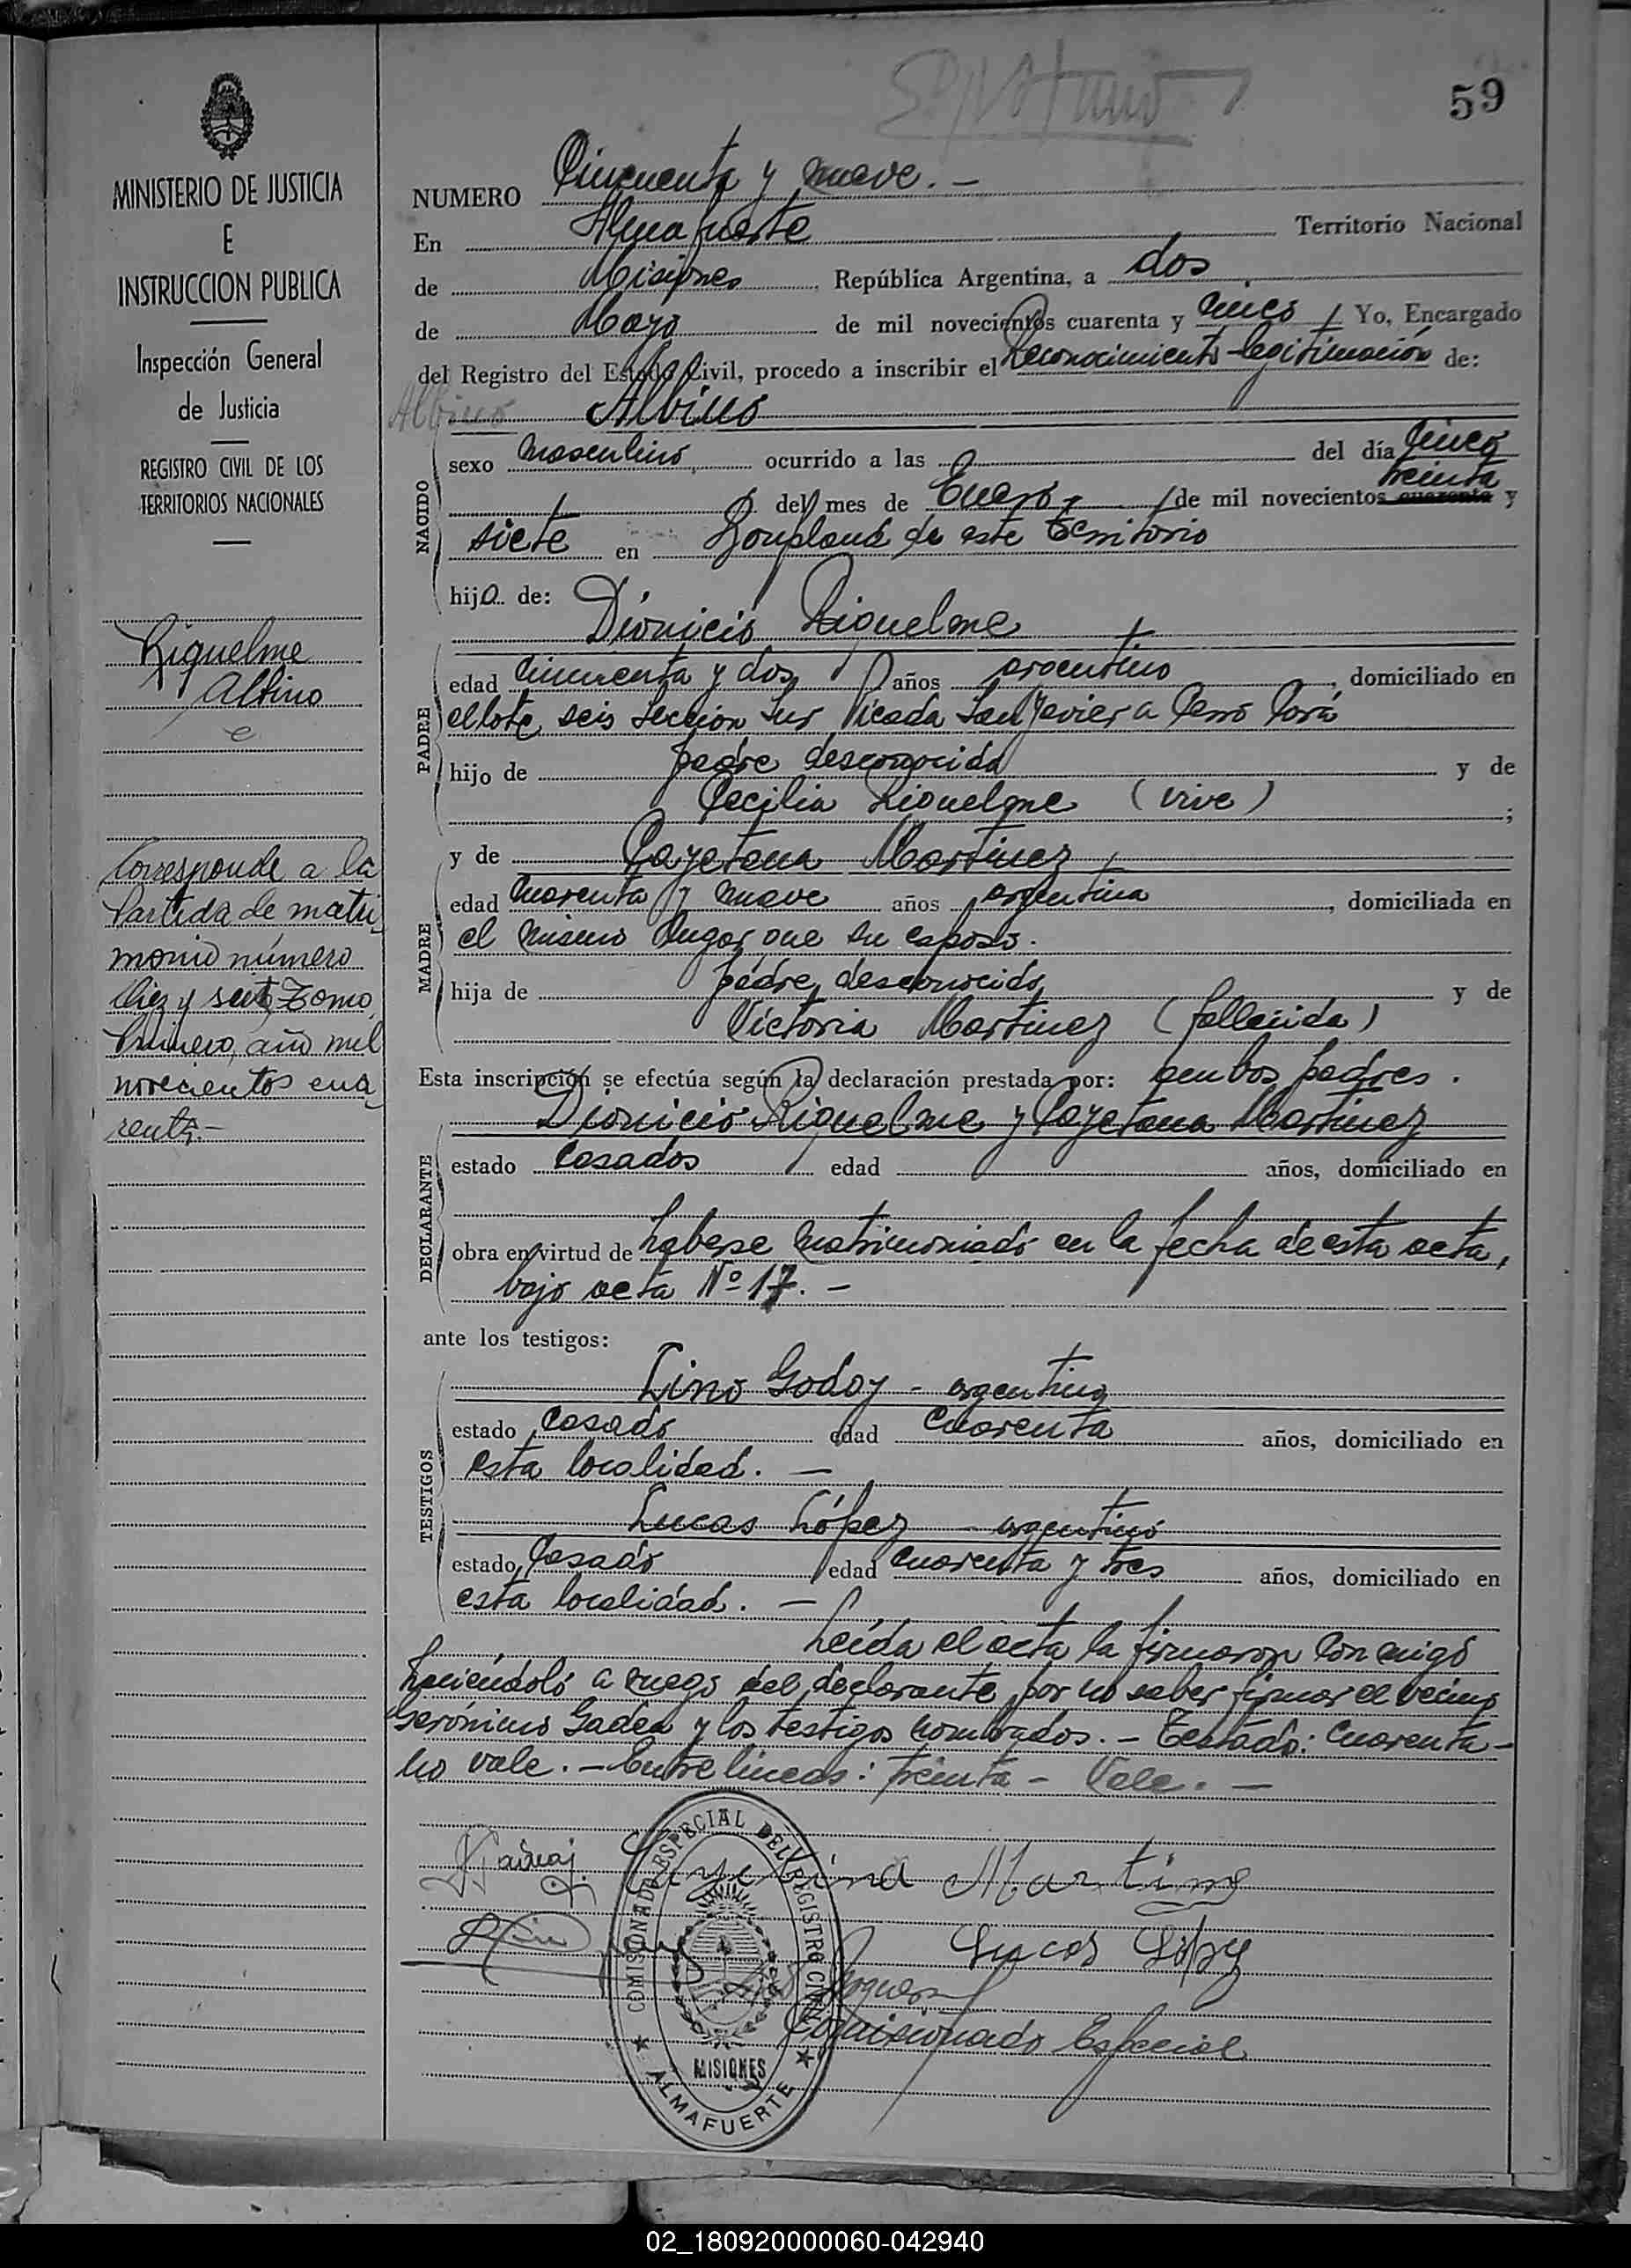 59
MINISTERIO DE JUSTICIA
E
INSTRUCCION PUBLICA
Inspección General
de Justicia
REGISTRO CIVIL DE LOS
TERRITORIOS NACIONALES
Riquelme
Albino
Corresponde a la
Partida de matri
monio número
diez y siete, Tomo
Primero, año mil
novecientos cua
renta.-
NUMERO Cincuenta y nueve. -
En Almafuerte Territorio Nacional
de Misiones República Argentina, a dos
de Mayo de mil novecientos cuarenta y cinco Yo, Encargado
del Registro del Estado Civil, procedo a inscribir el Reconocimiento-legitimación de:
Albino Albino
NACIDO
sexo masculino ocurrido a las del día cinco
treinta
del mes de Enero de mil novecientos cuarenta y
siete en Bonpland de este Territorio
hijo de:
Dionicio Riquelme
PADRE
edad cincuenta y dos años argentino, domiciliado en
el lote seis Sección Sur Picada San Javier a Cerro Corá
hijo de padre desconocido y de
Cecilia Riquelme (vive) ;
y de Cayetana Martinez
MADRE
edad cuarenta y nueve años argentina, domiciliada en
el mismo lugar que su esposo.
hija de padre desconocido y de
Victoria Martinez (fallecida)
Esta inscripción se efectúa según la declaración prestada por: ambos padres.
Dionicio Riquelme y Cayetana Martinez
DECLARANTE
estado casados edad años, domiciliado en
obra en virtud de haberse matrimoniado en la fecha de esta acta,
bajo acta Nº 17. -
ante los testigos:
TESTIGOS
Lino Godoy - argentino
estado casado edad cuarenta años, domiciliado en
esta localidad. -
Lucas López - argentino
estado casado edad cuarenta y tres años, domiciliado en
esta localidad. -
Leída el acta la firmaron conmigo
haciéndolo a ruego del declarante por no saber firmar el vecino
Gerónimo Gadea y los testigos nombrados. - Testado: cuarenta -
no vale. - Entre lineas: treinta - Vale. -
Cayetana Martinez
Lucas López
Comisionado Especial
COMISIONADO ESPECIAL DEL REGISTRO CIVIL
MISIONES
ALMAFUERTE
02_180920000060-042940